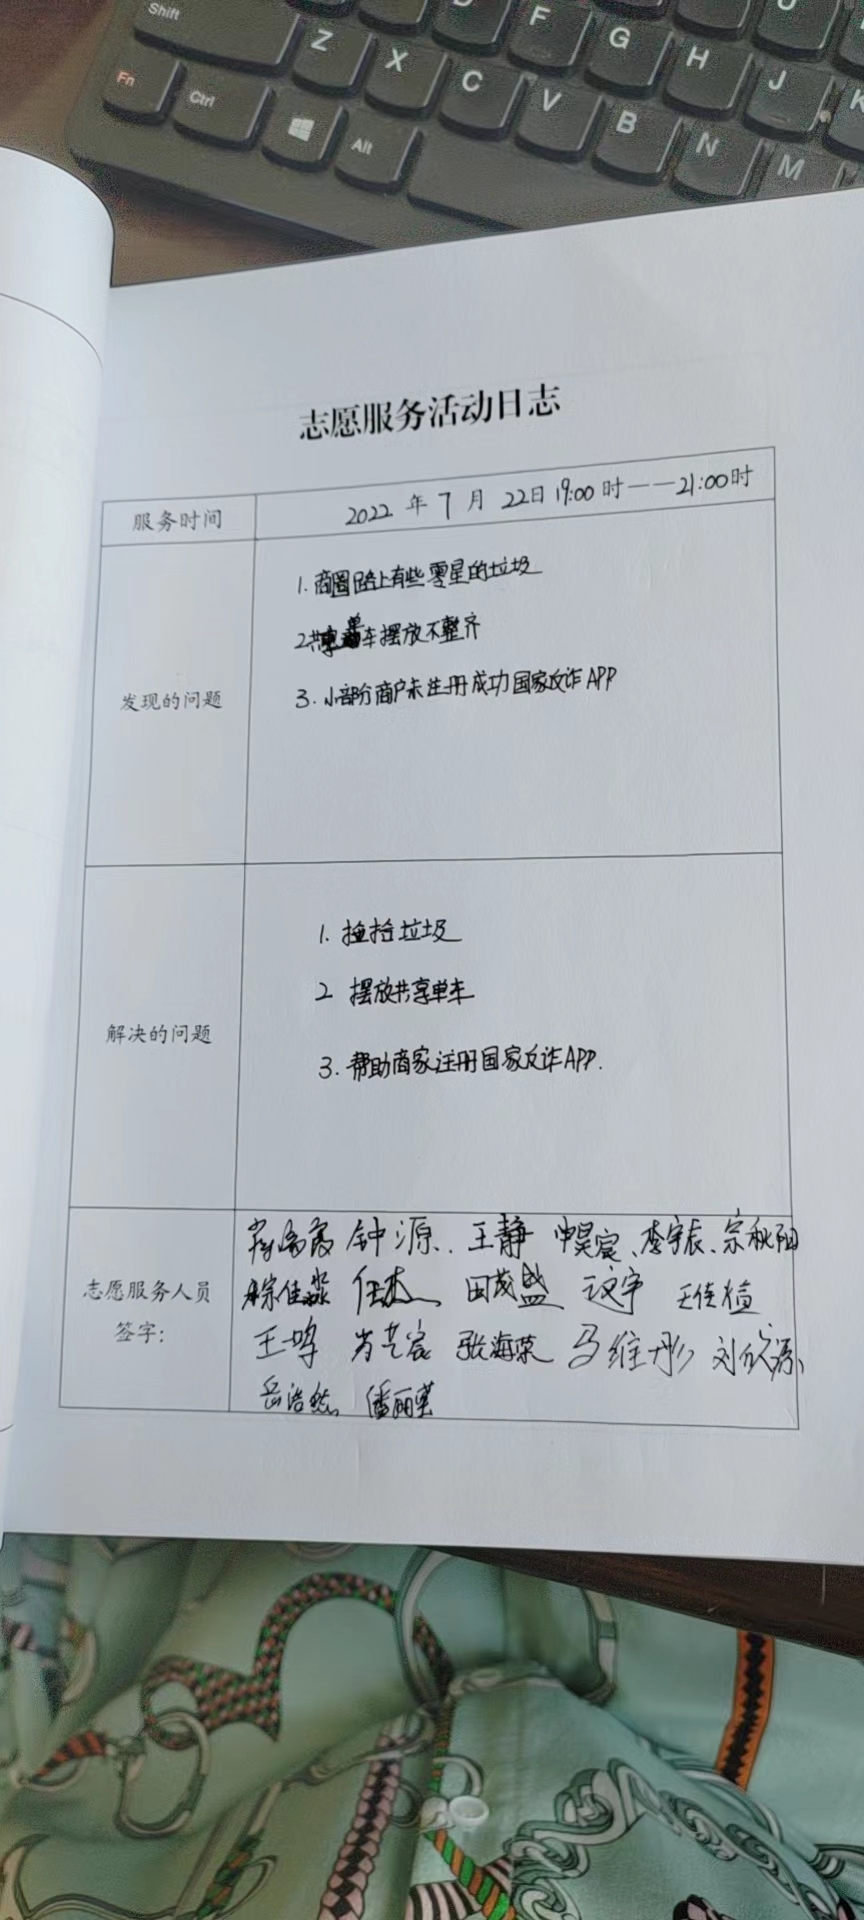 Shift Z X C F G H J
Fn Ctrl Alt V B N M K
志愿服务活动日志
服务时间 2022年7月22日19:00时——21:00时
发现的问题
1.商圈路上有些零星的垃圾
2共享单车摆放不整齐
3.小部分商户未注册成功国家反诈APP
解决的问题
1.捡拾垃圾
2 摆放共享单车
3.帮助商家注册国家反诈APP.
志愿服务人员
签字:
钟源、王静 申昊宸、李宇辰、宗秋阳
任杰、田茂盛 王文宇 王佳檀
张海荣 马维彤
岳浩然、潘丽莹